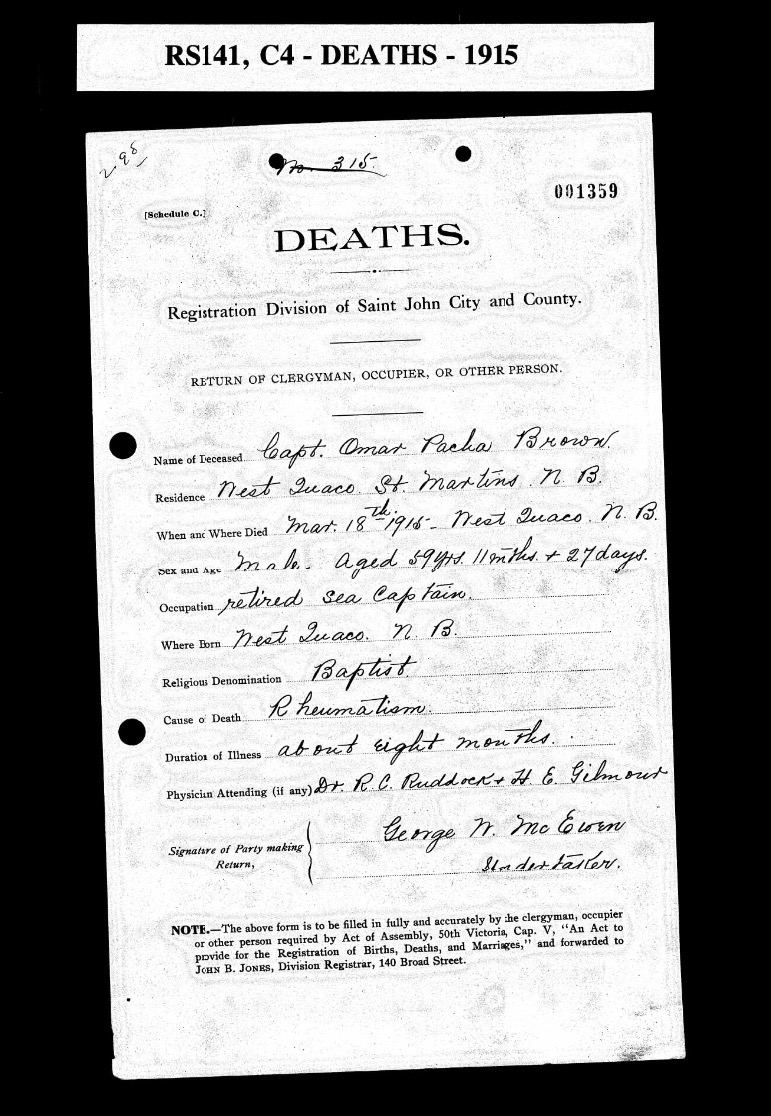 RS141, C4 - DEATHS - 1915
298
No. 315.
001359
[Schedule C.]
DEATHS.
Registration Division of Saint John City and County.
RETURN OF CLERGYMAN, OCCUPIER, OR OTHER PERSON.
Name of Deceased Capt. Omar Pacha Brown.
Residence West Quaco St. Martins. N. B.
When and Where Died Mar. 18th 1915- West Quaco. N. B.
Sex and Age Male. Aged 59 yrs. 11 mths. + 27 days.
Occupation retired sea Captain.
Where Born West Quaco. N. B.
Religious Denomination Baptist.
Cause of Death Rheumatism.
Duration of Illness about eight months.
Physician Attending (if any) Dr. R. C. Ruddock + H. E. Gilmour
George W. McEwen
Signature of Party making Return,
Undertaker.
NOTE.—The above form is to be filled in fully and accurately by the clergyman, occupier
or other person required by Act of Assembly, 50th Victoria, Cap. V, "An Act to
provide for the Registration of Births, Deaths, and Marriages," and forwarded to
JOHN B. JONES, Division Registrar, 140 Broad Street.